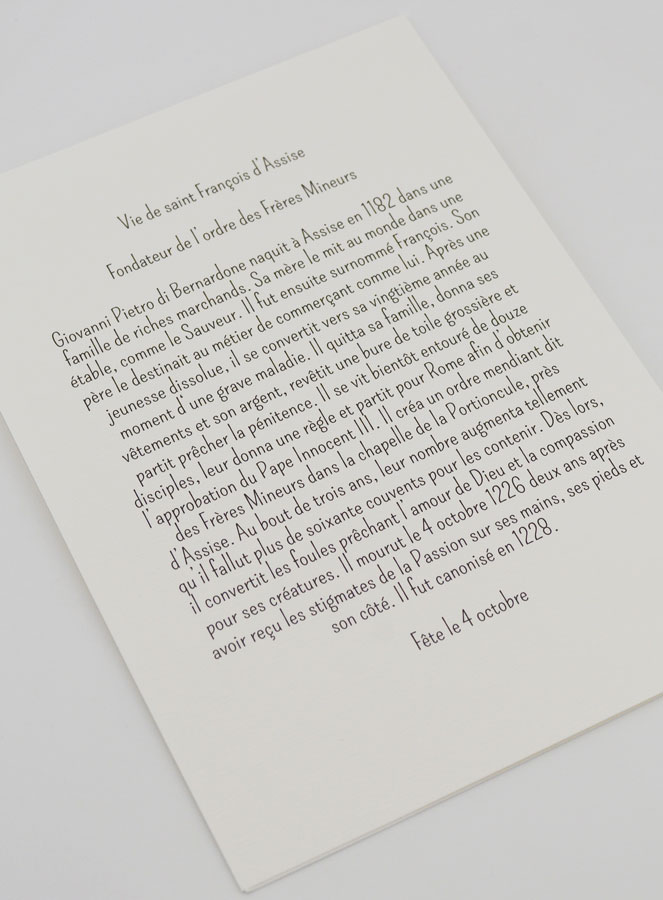 Vie de saint François d'Assise
Fondateur de l'ordre des Frères Mineurs
Giovanni Pietro di Bernardone naquit à Assise en 1182 dans une
famille de riches marchands. Sa mère le mit au monde dans une
étable, comme le Sauveur. Il fut ensuite surnommé François. Son
père le destinait au métier de commerçant comme lui. Après une
jeunesse dissolue, il se convertit vers sa vingtième année au
moment d'une grave maladie. Il quitta sa famille, donna ses
vêtements et son argent, revêtit une bure de toile grossière et
partit prêcher la pénitence. Il se vit bientôt entouré de douze
disciples, leur donna une règle et partit pour Rome afin d'obtenir
l'approbation du Pape Innocent III. Il créa un ordre mendiant dit
des Frères Mineurs dans la chapelle de la Portioncule, près
d'Assise. Au bout de trois ans, leur nombre augmenta tellement
qu'il fallut plus de soixante couvents pour les contenir. Dès lors,
il convertit les foules prêchant l'amour de Dieu et la compassion
pour ses créatures. Il mourut le 4 octobre 1226 deux ans après
avoir reçu les stigmates de la Passion sur ses mains, ses pieds et
son côté. Il fut canonisé en 1228.
Fête le 4 octobre